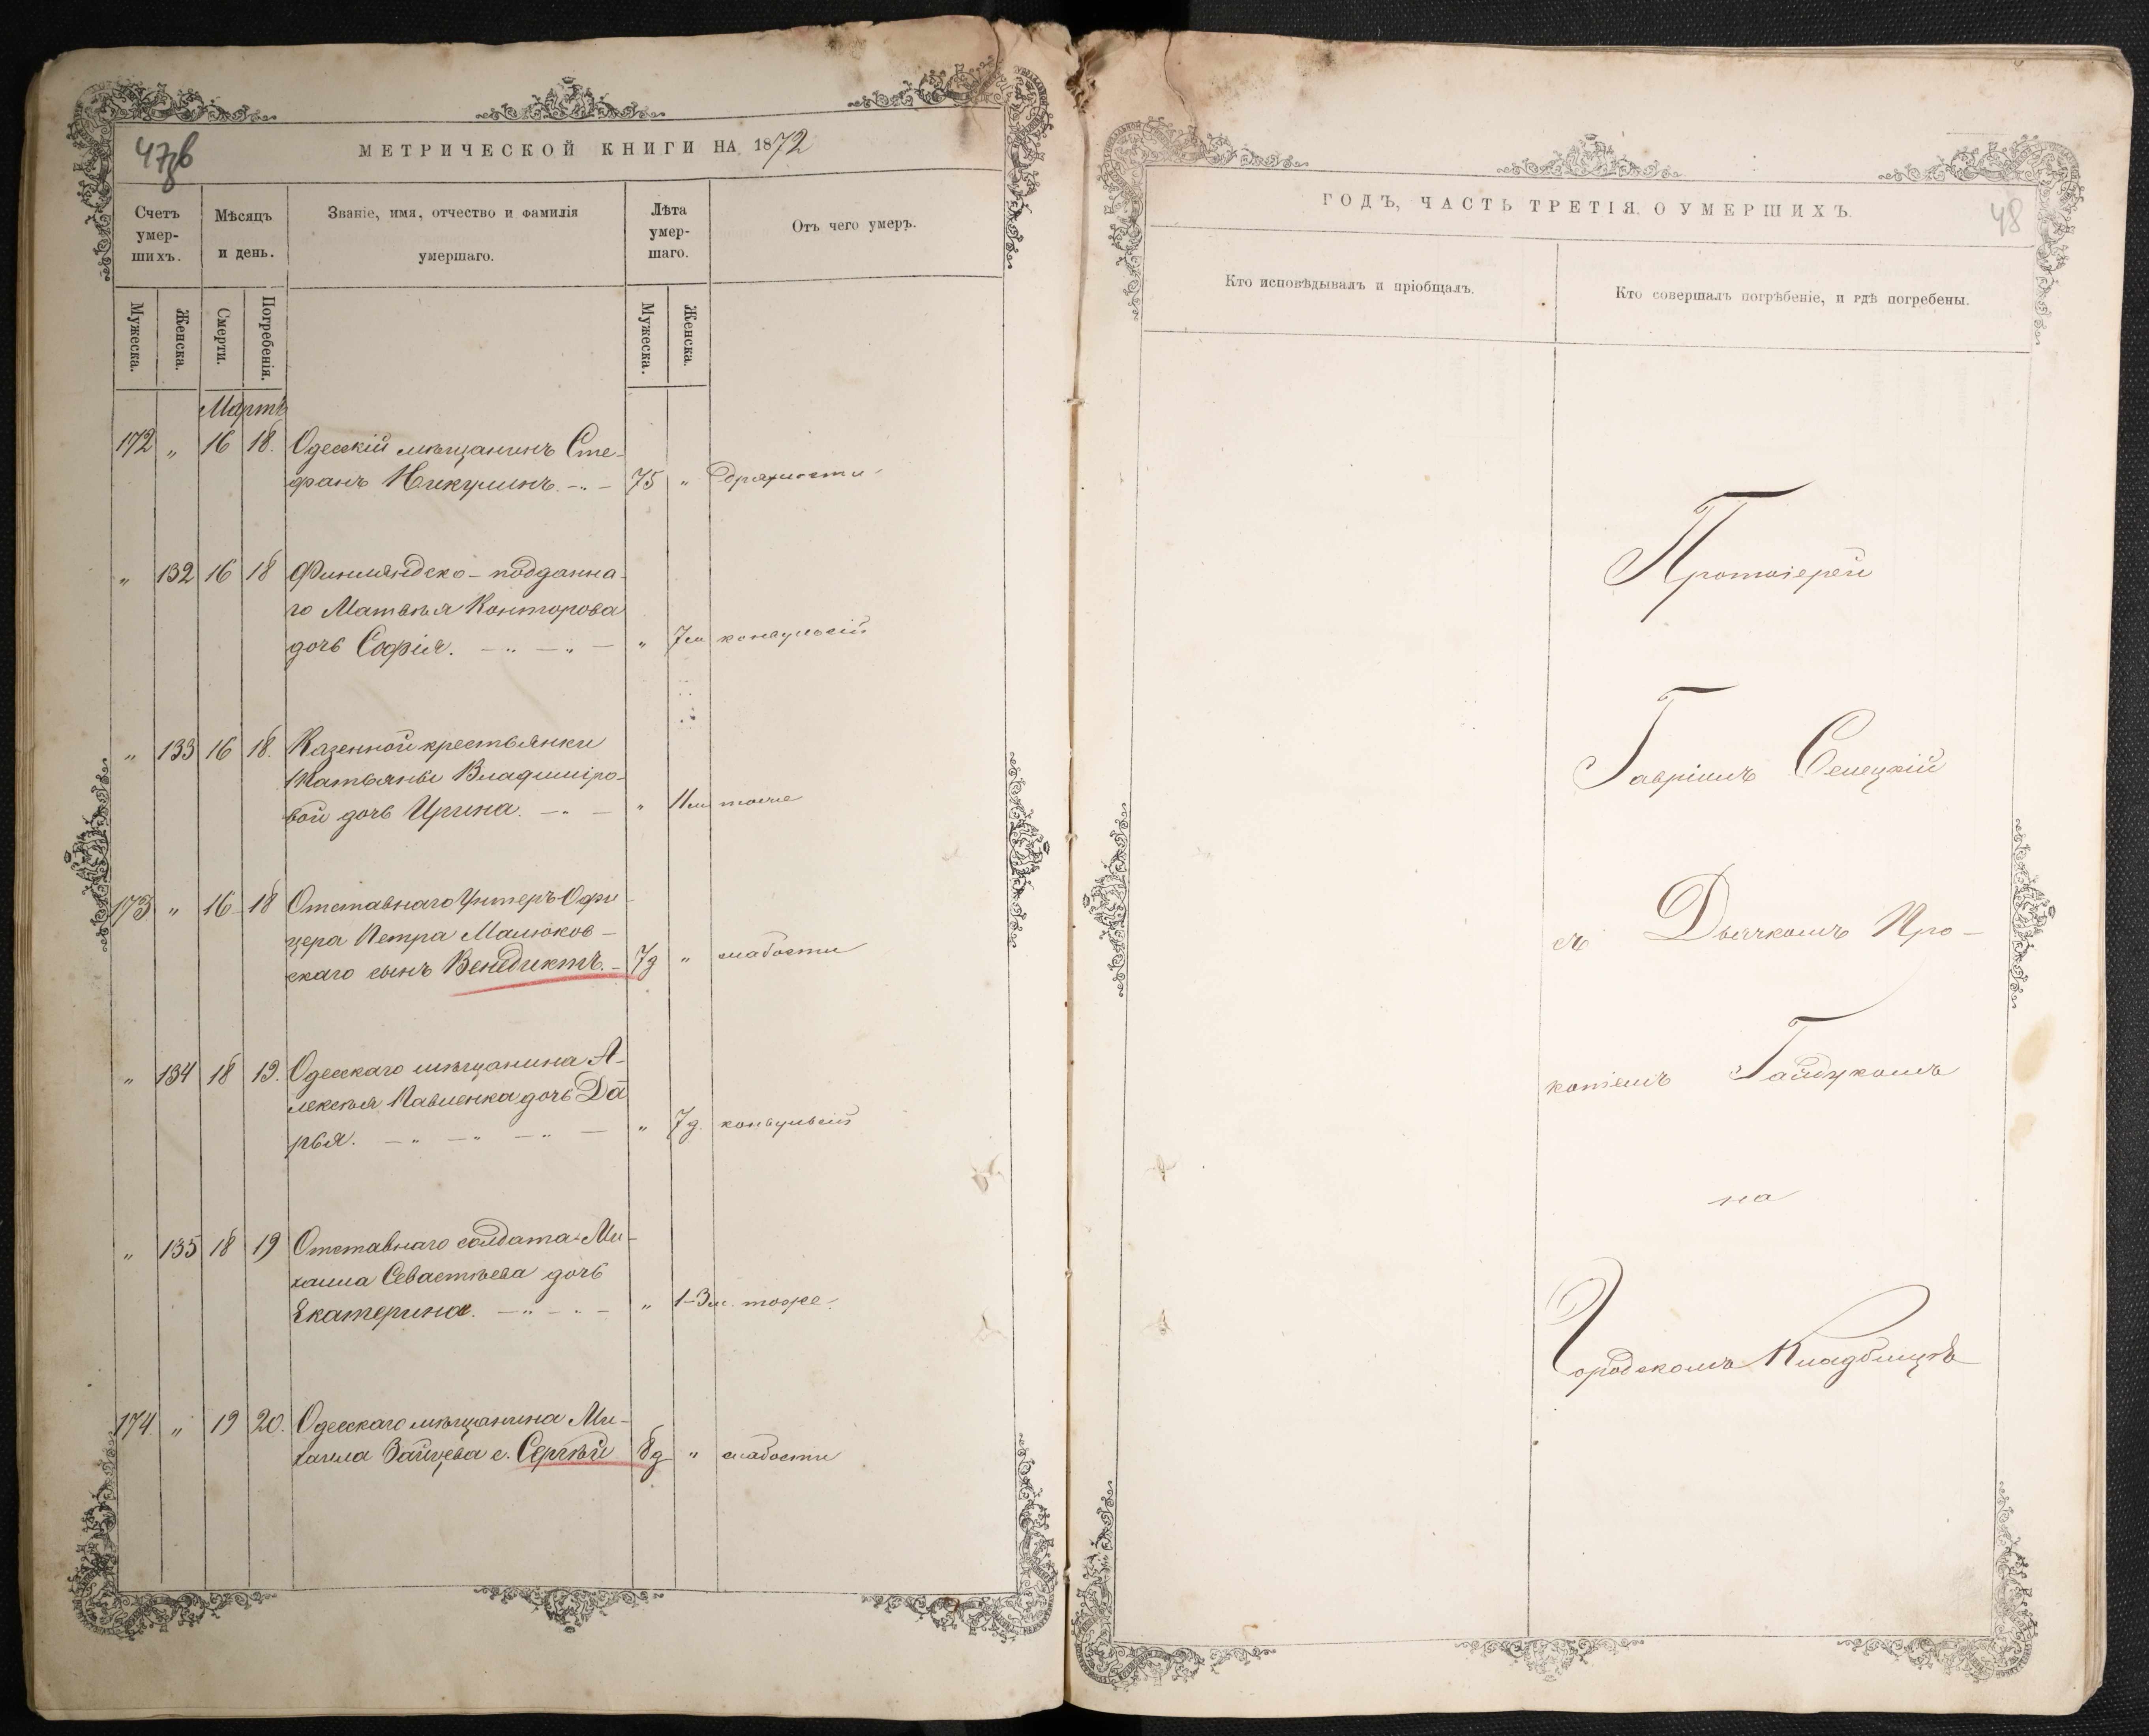 47в
МЕТРИЧЕСКОЙ КНИГИ НА 1872
Счетъ умер-шихъ.
Мѣсяцъ и день.
Званіе, имя, отчество и фамилія умершаго.
Лѣта умер-шаго.
Отъ чего умеръ.
Мужеска.
Женска.
Смерти.
Погребенія.
Мужеска.
Женска.
Мартъ
172 „ 16 18. Одесскій мѣщанинъ Сте-
фанъ Никулинъ. 75 „ дряхлости
„ 132 16 18 Финляндско-подданна-
го Матвѣя Конторова
дочь Софія. „ 7м конвульсій
„ 133 16 18. Казенной крестьянки
Татьяны Владиміро-
вой дочь Ирина. „ 11м тоже
173 „ 16 18 Отставнаго Унтеръ Офи-
цера Петра Малюков-
скаго сынъ Венедиктъ. 7д „ слабости
„ 134 18 19. Одесскаго мѣщанина А-
лексѣя Павленка дочь Да
рья. „ 7д. конвульсій
„ 135 18 19 Отставнаго солдата Ми-
хаила Севастѣева дочь
Екатерина. „ 1-3м. тоже.
174. „ 19 20. Одесскаго мѣщанина Ми-
хаила Зайцева с. Сергѣй 8д „ слабости
ГОДЪ, ЧАСТЬ ТРЕТІЯ, О УМЕРШИХЪ.
48
Кто исповѣдывалъ и пріобщалъ.
Кто совершалъ погрѣбеніе, и гдѣ погребены.
Протоіерей
Гавріилъ Селецкій
съ Дьячкомъ Про-
копіемъ Гайдукомъ
на
Городскомъ Кладбищѣ